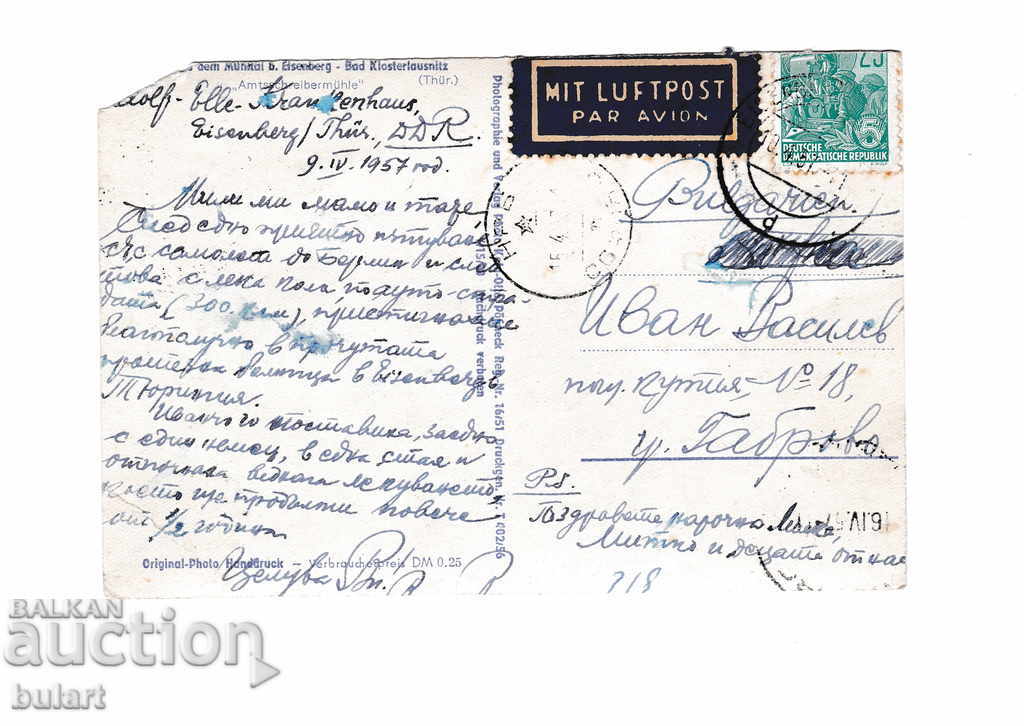 dem Mühltal b. Eisenberg - Bad Klosterlausnitz
"Amtsschreibermühle" (Thür.)
Elle-Krankenhaus,
Eisenberg/Thür, DDR.
9.IV.1957 год.
Мили ми мамо и тате,
След едно приятно пътуване
със самолета до Берлин и след
това с лека кола, по ауто-стра-
дата (300 км), пристигнахме
в прочутата
болница в Eisenberg
Тюрингия.
Иванчо го поставиха, заедно
с един немец, в една стая и
веднага лекуването,
което ще продължи повече
от 1/2 година.
Original-Photo Handdruck - Verbraucherpreis DM 0.25
Целува Ви:
Photographie und Verlag Pößneck Reg. Nr. 16/51 Druckgen. Nr. T 402/56
Nachdruck verboten
MIT LUFTPOST
PAR AVION
25
5
DEUTSCHE
DEMOKRATISCHE REPUBLIK
Bulgarien.
Иван Василев
пощ. кутия № 18,
гр. Габрово.
P.S.
Поздравете нарочно
Митко и децата от нас
16.IV.57
218
BALKAN
auction
bulart